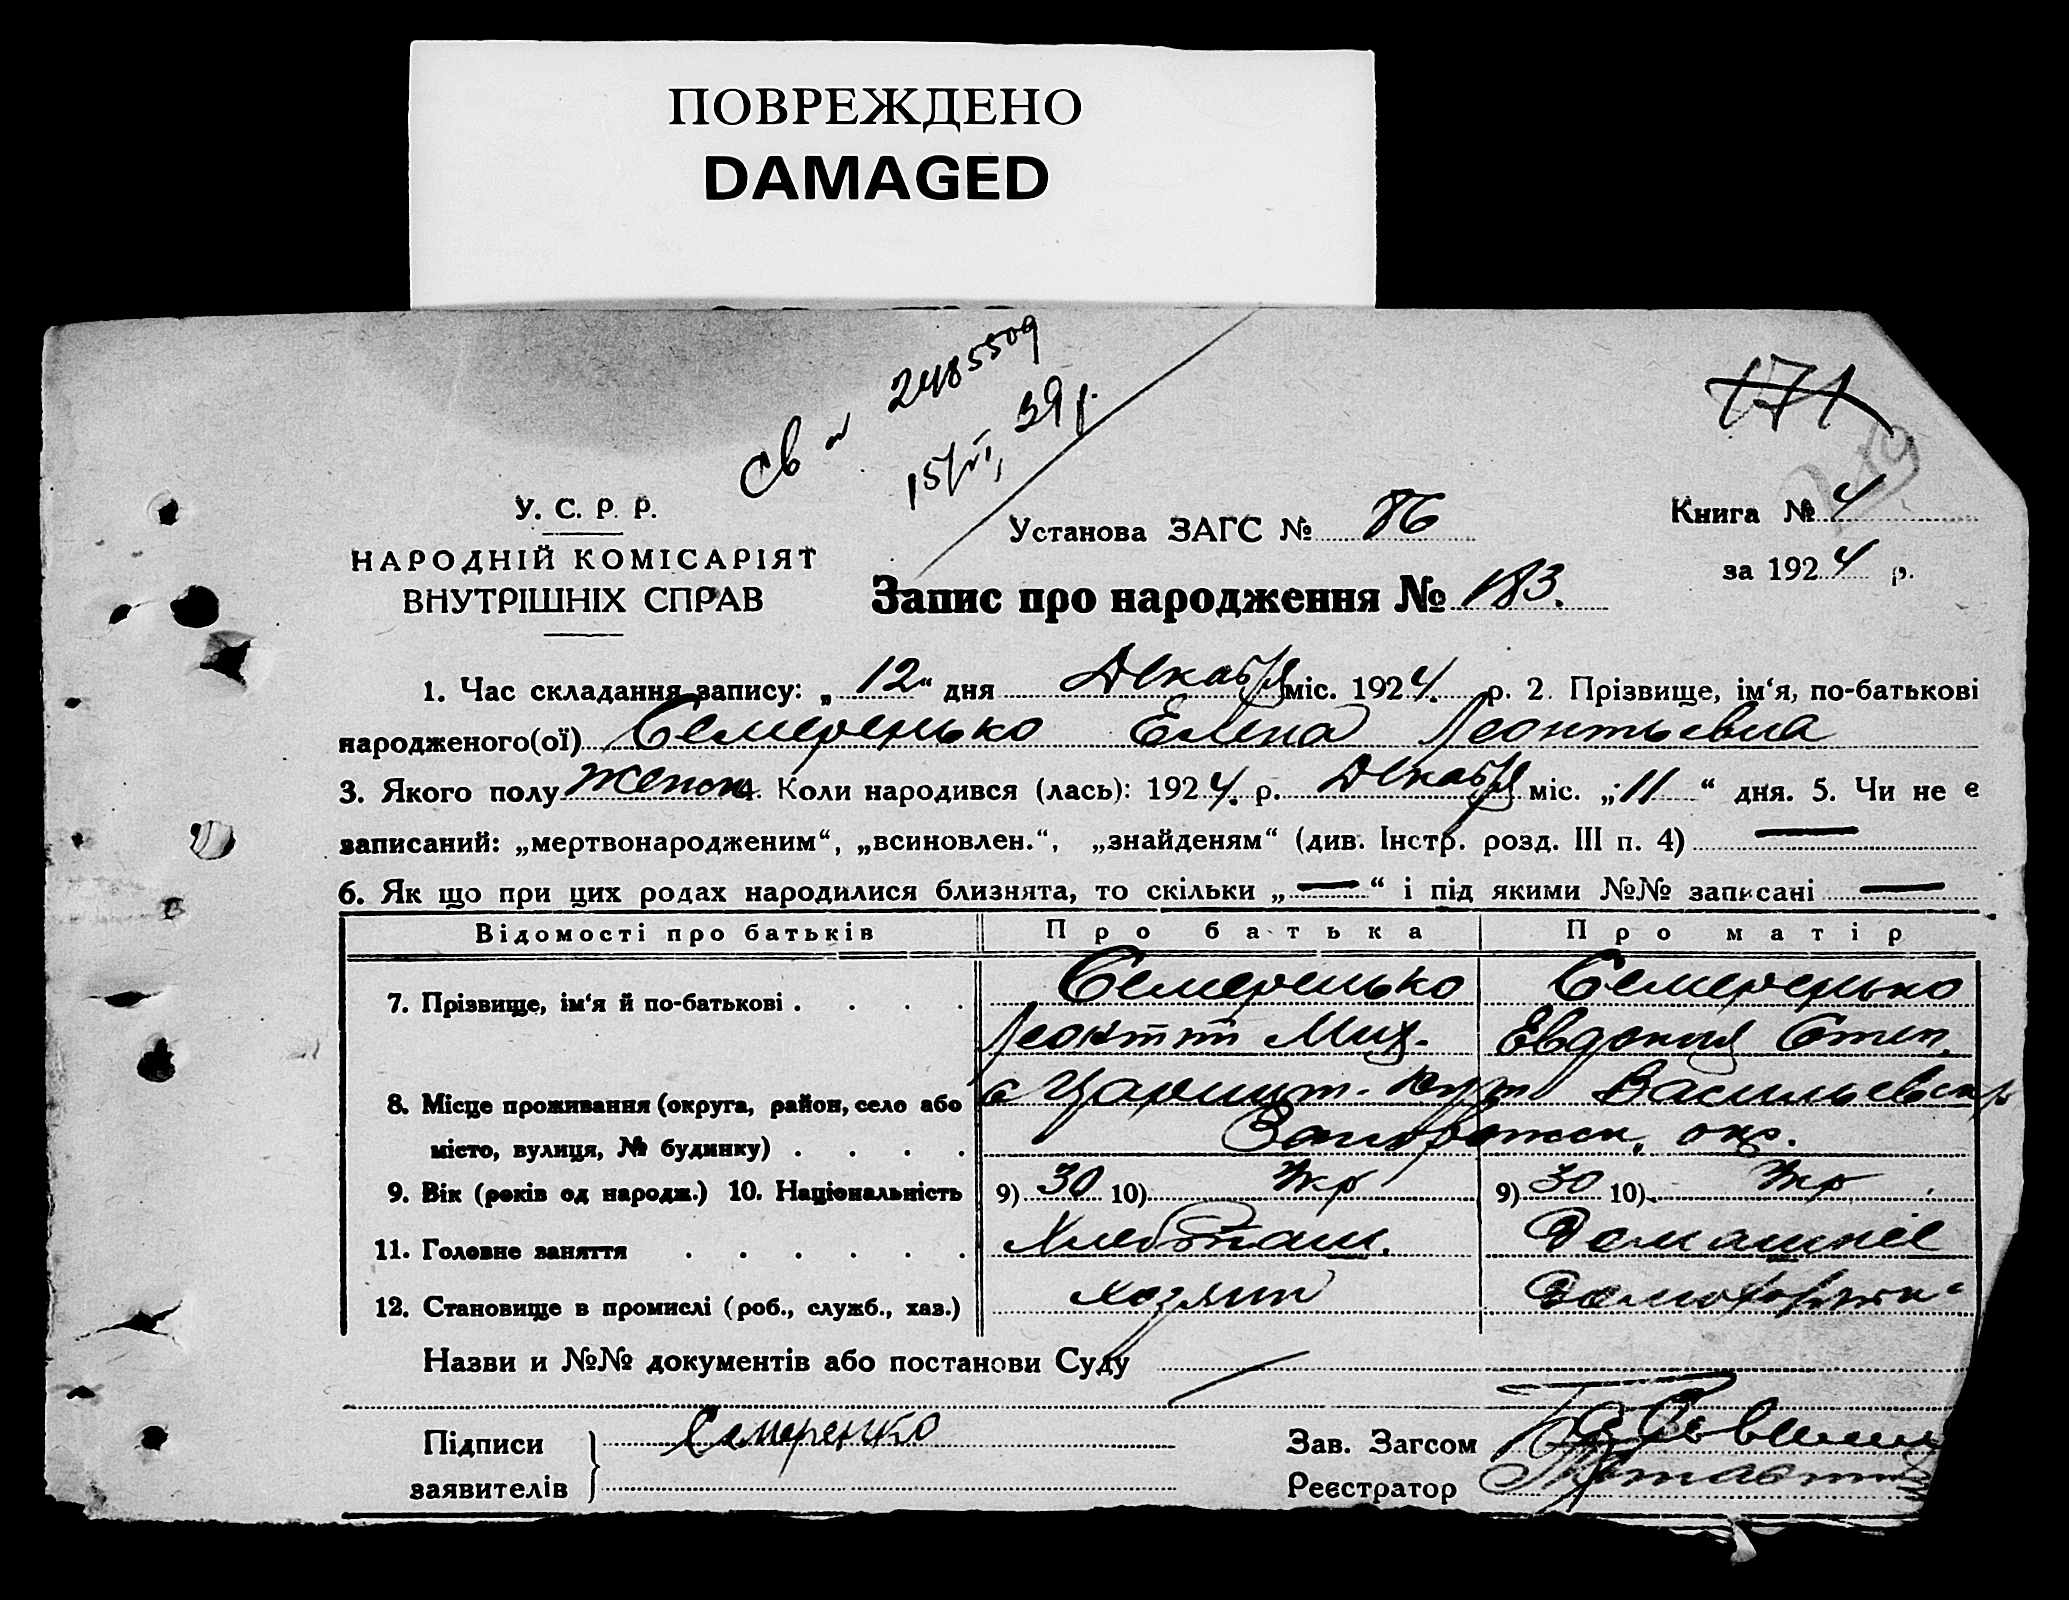 ПОВРЕЖДЕНО
DAMAGED
Св № 2485509
15/VI, 39 р.
171
У. С. Р. Р.
НАРОДНІЙ КОМІСАРІЯТ
ВНУТРІШНІХ СПРАВ
Установа ЗАГС № 86
Книга № 4
за 1924 р.
Запис про народження № 183.
1. Час складання запису: „12“ дня Декабря міс. 1924. р. 2. Прізвище, ім‘я, по-батькові
народженого(ої) Семеренько Елена Леонтьевна
3. Якого полу женск 4. Коли народився (лась): 1924. р. Декабря міс. „11“ дня. 5. Чи не є
записаний: „мертвонародженим“, „всиновлен.“, „знайденям“ (див. Інстр. розд. III п. 4) —
6. Як що при цих родах народилися близнята, то скільки „—“ і під якими №№ записані —
Відомості про батьків Про батька Про матір
7. Прізвище, ім‘я й по-батькові . . . . Семеренько Семеренько
Леонтий Мих. Евдокия Степ.
8. Місце проживання (округа, район, село або с Царицын. Кут Васильевск р
місто, вулиця, № будинку) . . . . Запорожск. окр.
9. Вік (років од народж.) 10. Національність 9) 30 10) Укр 9) 30 10) Укр
11. Головне заняття . . . . . . Хлебопаш. Домашнее
12. Становище в промислі (роб., служб., хаз.) хозяин
Назви и №№ документів або постанови Суду —
Підписи Семеренко Зав. Загсом
заявителів Реєстратор